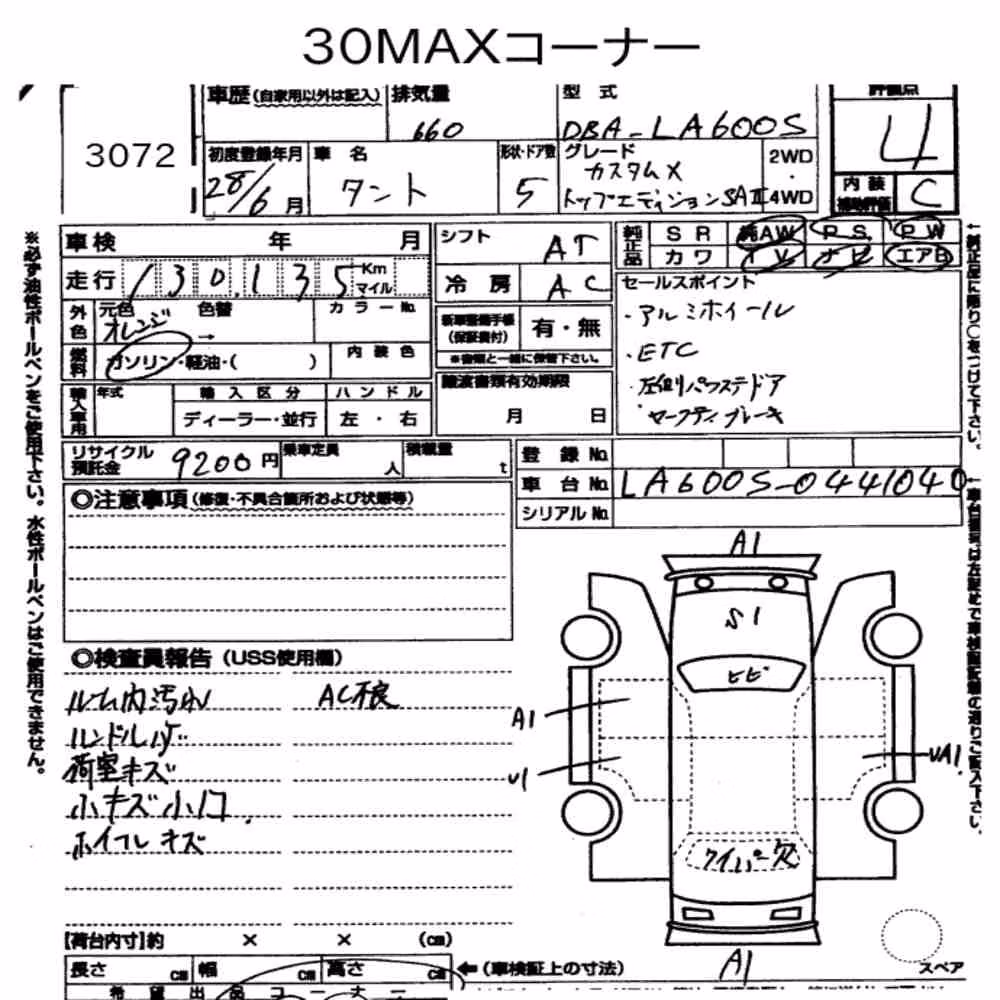 30MAXコーナー
車歴(自家用以外は記入) 排気量 型 式 評価点
660 DBA-LA600S 4
3072
初度登録年月 車 名 形状・ドア数 グレード 2WD
・
4WD
28/6月 タント 5 カスタムX
トップエディションSAⅡ
内装
補助評価 C
車検 年 月
走行 130,135 Km
マイル
外色 元色 色替 カラーNo.
オレンジ →
燃料 ガソリン・軽油・( ) 内装色
輸入車用 年式 輸入区分 ハンドル
ディーラー・並行 左・右
シフト AT
冷房 AC
新車整備手帳
(保証書付) 有・無
※書類と一緒に保管下さい。
譲渡書類有効期限
月 日
純正品 SR 純AW PS PW
カワ TV ナビ エアB
セールスポイント
・アルミホイール
・ETC
・左側パワスラドア
・セーフティブレーキ
リサイクル
預託金 9200円 乗車定員 人 積載量 t
登録No.
車台No. LA600S-0441040
シリアルNo.
◎注意事項(修復・不具合箇所および状態等)
◎検査員報告(USS使用欄)
ルーム内汚れ AC不良
ハンドルハゲ
荷室キズ
小キズ小凹
ホイールキズ
A1
S1
ヒビ
A1
U1
UA1
ワイパー欠
A1
スペア
【荷台内寸】約 × × (cm)
長さ cm 幅 cm 高さ cm ←(車検証上の寸法)
希望出品コーナー
※必ず油性ボールペンをご使用下さい。水性ボールペンはご使用できません。
←純正品に限り○をつけて下さい。
←車台番号は左詰めで車検証記載の通りご記入下さい。